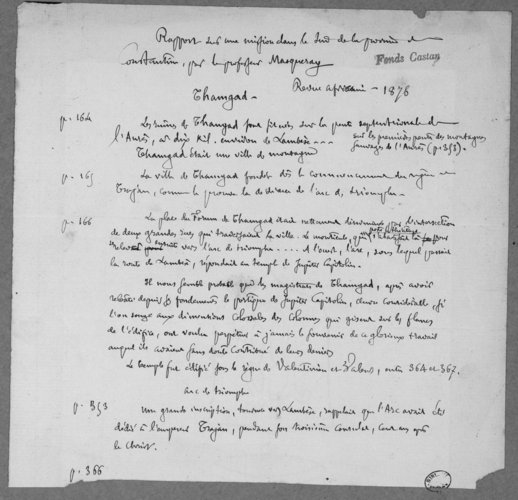 Rapport sur une mission dans le Sud de la province de
Constantine, par le professeur Masqueray
Fonds Castan
Revue africaine - 1876
Thamgad -
p. 164
Les ruines de Thamgad sont situées sur la pente septentrionale de
l'Aurès, à dix kil. environ de Lambèse ...
sur les premières pentes des montagnes
sauvages de l'Aurès (p. 353).
Thamgad était une ville de montagne
p. 165
La ville de Thamgad fondée dès le commencement du règne de
Trajan, comme le prouve la dédicace de l'arc de triomphe -
p. 166
La place du Forum de Thamgad était nettement déterminée par l'intersection
de deux grandes rues qui traversaient la ville. Le
vers l'arc de triomphe .... A l'ouest, l'arc, sous lequel passait
la route de Lambèse, répondait au temple de Jupiter Capitolin.
Il nous semble que les magistrats de Thamgad, après avoir
depuis les fondements le portique de Jupiter Capitolin, œuvre considérable, si
l'on songe aux dimensions colossales des colonnes qui gisent sur les flancs
de l'édifice, ont voulu perpétuer à jamais le souvenir de ce glorieux travail
auquel ils avaient sans doute contribué de leurs deniers
Le temple fut édifié sous le règne de Valentinien et Valens, entre 364 et 367.
arc de triomphe
p. 353
Une grande inscription, tournée vers Lambèse, rappelait que l'Arc avait été
dédié à l'empereur Trajan, pendant son troisième consulat, cent ans après
le Christ.
p. 366